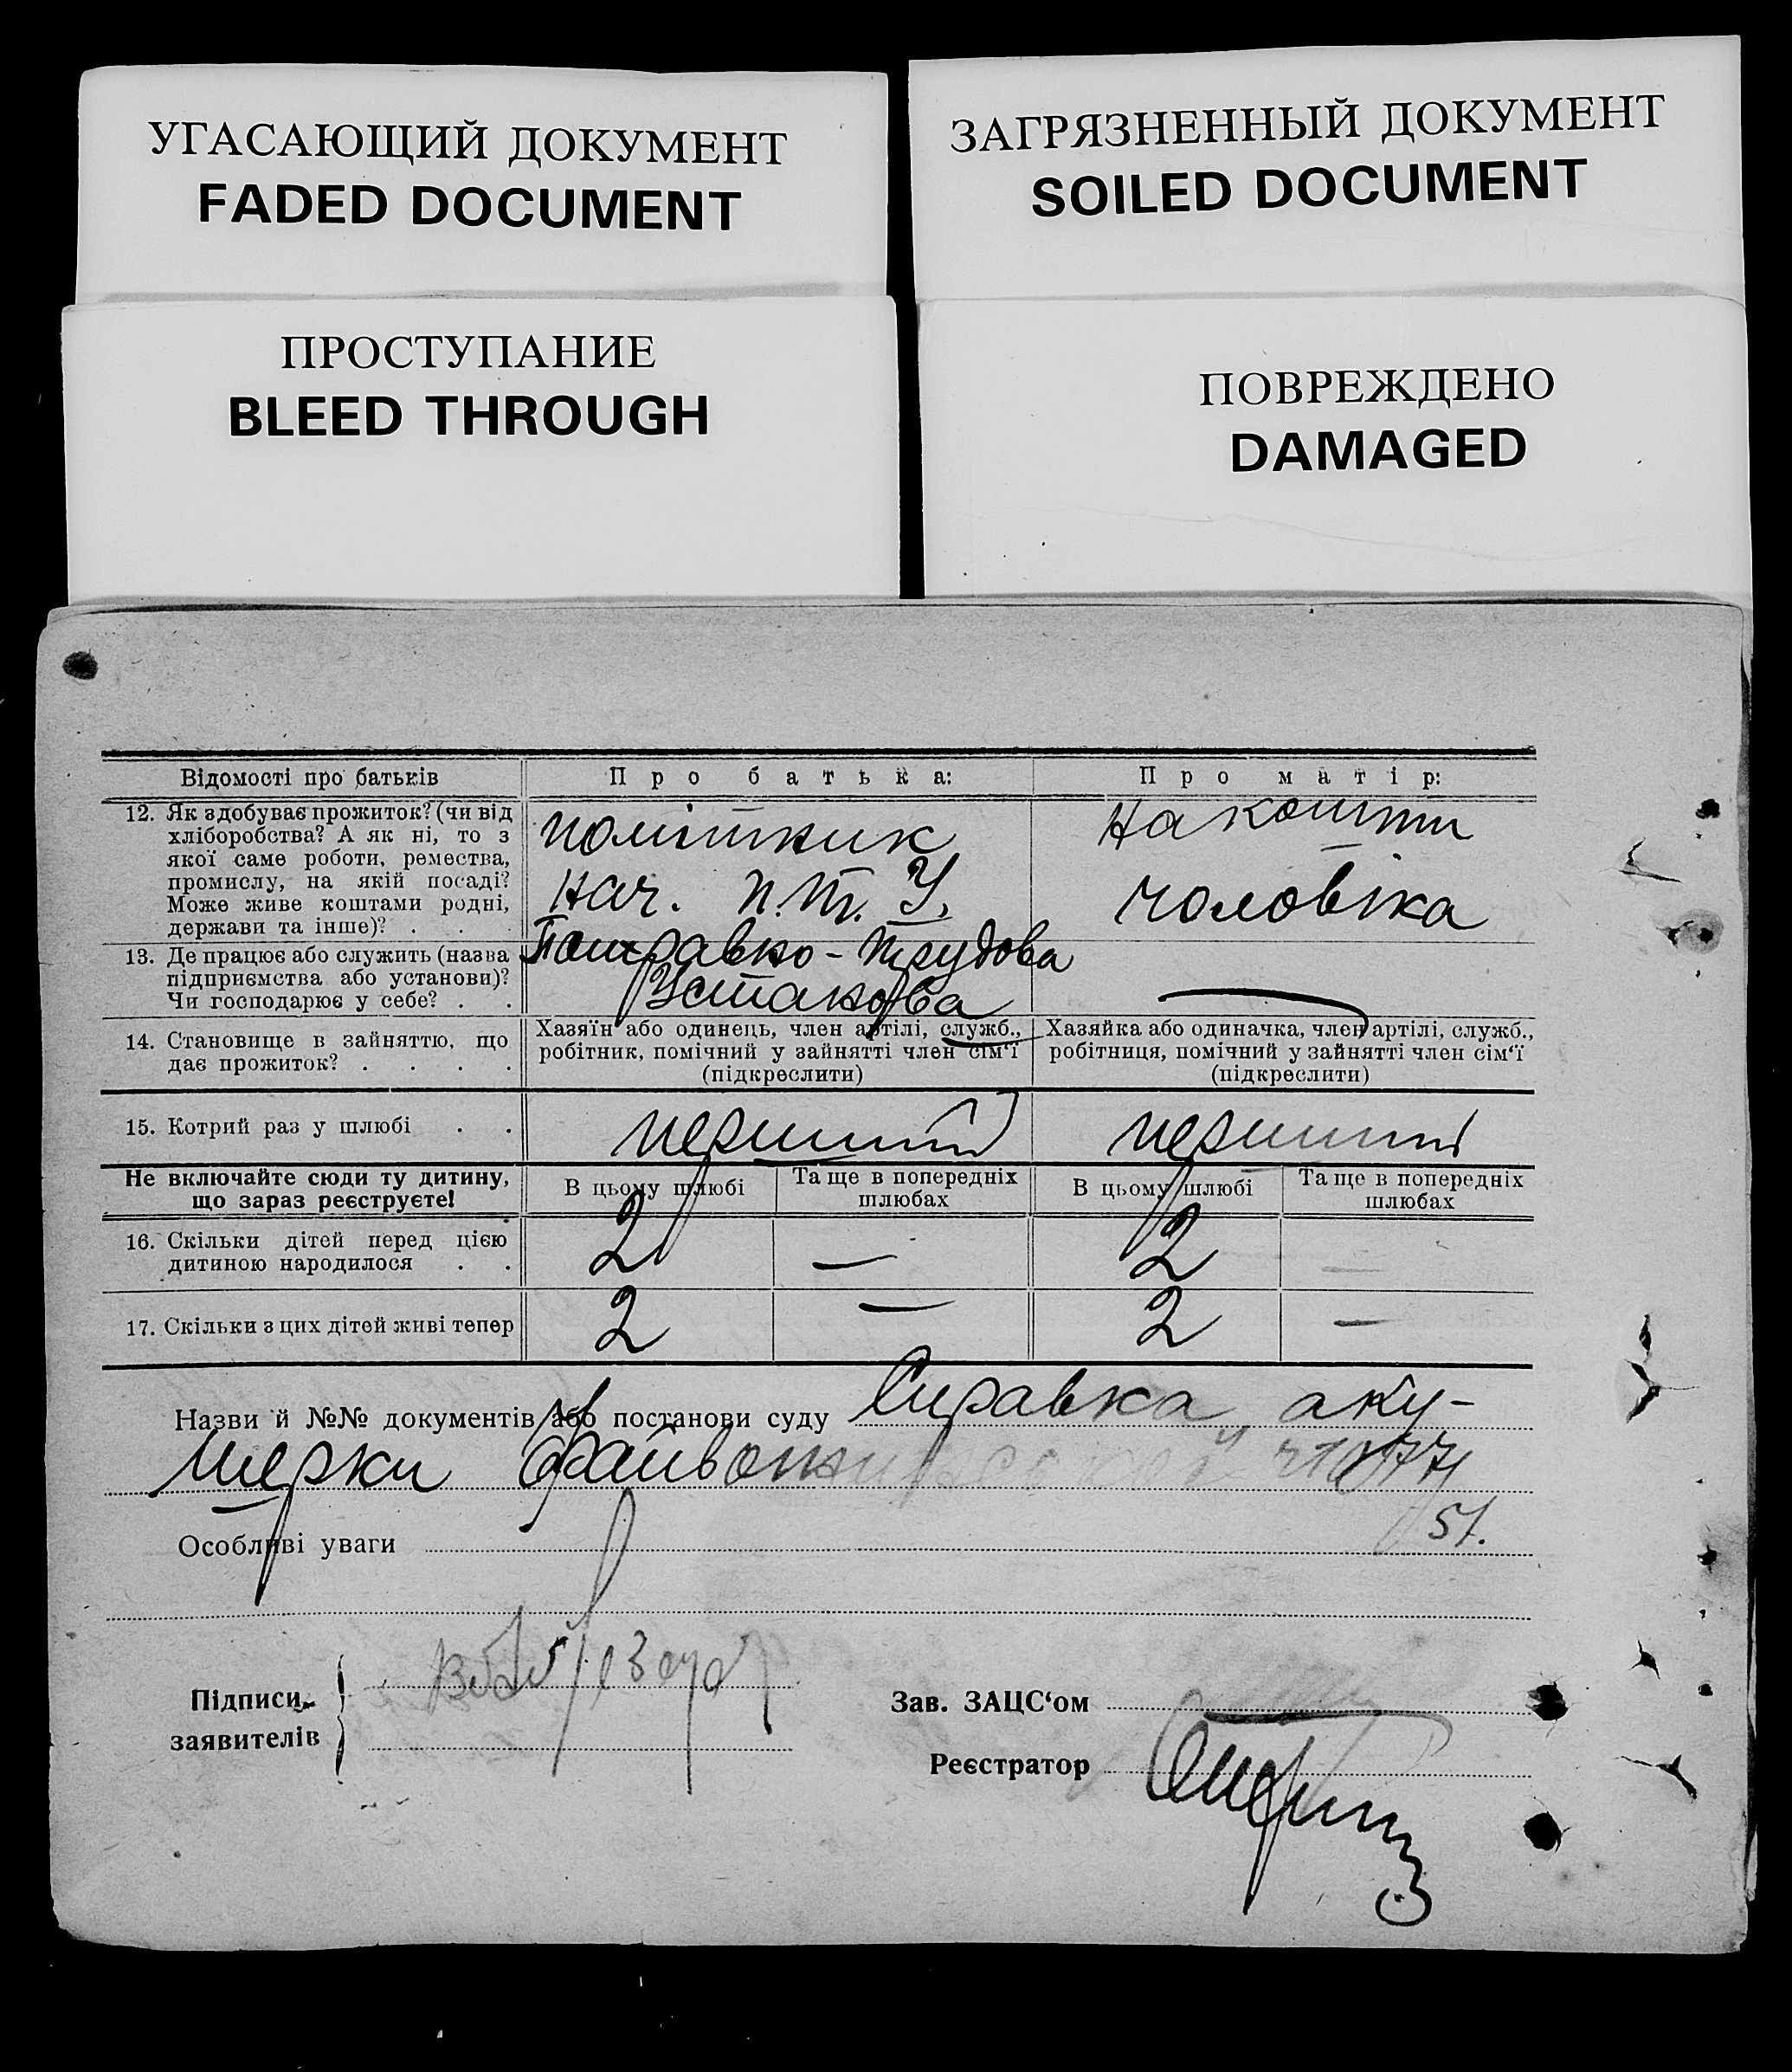 УГАСАЮЩИЙ ДОКУМЕНТ
FADED DOCUMENT
ЗАГРЯЗНЕННЫЙ ДОКУМЕНТ
SOILED DOCUMENT
ПРОСТУПАНИЕ
BLEED THROUGH
ПОВРЕЖДЕНО
DAMAGED
Відомості про батьків
Про батька:
Про матір:
12. Як здобуває прожиток? (чи від
хліборобства? А як ні, то з
якої саме роботи, ремества,
промислу, на якій посаді?
Може живе коштами родні,
держави та інше)? . . .
помішник
нач. п.т. У.
на кошти
чоловіка
13. Де працює або служить (назва
підприємства або установи)?
Чи господарює у себе? . .
Поправко-трудова
Установа
—
14. Становище в зайняттю, що
дає прожиток? . . . .
Хазяїн або одинець, член артілі, служб.,
робітник, помічний у зайнятті член сім'ї
(підкреслити)
Хазяйка або одиначка, член артілі, служб.,
робітниця, помічний у зайнятті член сім'ї
(підкреслити)
15. Котрий раз у шлюбі . .
перший
перший
Не включайте сюди ту дитину,
що зараз реєструєте!
В цьому шлюбі
Та ще в попередніх
шлюбах
В цьому шлюбі
Та ще в попередніх
шлюбах
16. Скільки дітей перед цією
дитиною народилося . .
2 — 2 —
17. Скільки з цих дітей живі тепер
2 — 2 —
Назви й №№ документів або постанови суду Справка аку-
шерки
51.
Особливі уваги
Підписи
заявителів
Зав. ЗАЦС'ом
Реєстратор